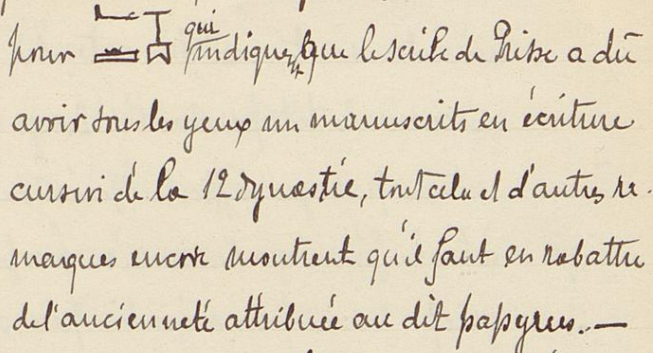 pour qui indique que le scribe de Prisse a dû
avoir sous les yeux un manuscrits en écriture
cursivi de la 12 dynastie, tout cela et d'autres re-
marques encore montrent qu'il faut en rabattre
de l'ancienneté attribuée au dit papyrus. —